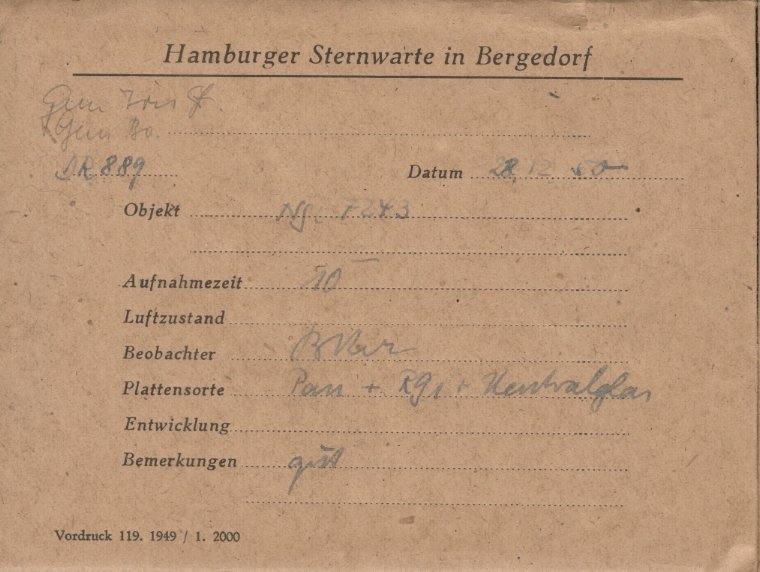 Hamburger Sternwarte in Bergedorf
889
Datum 28. 12. 50
Objekt Ng. 7243
Aufnahmezeit 10
Luftzustand
Beobachter
Plattensorte Pan + RG1 + Neutralglas
Entwicklung
Bemerkungen gut
Vordruck 119. 1949 / 1. 2000